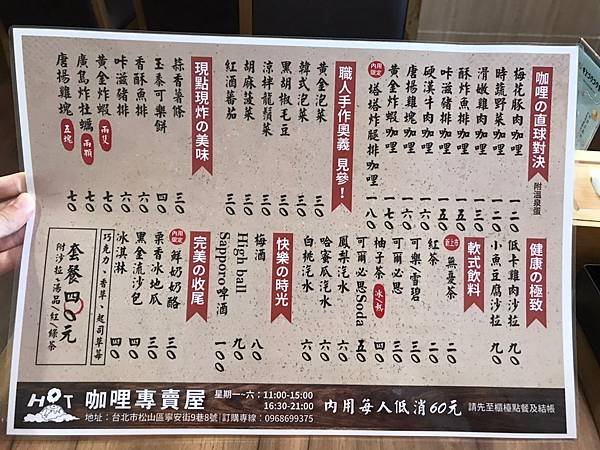 咖哩の直球對決 附溫泉蛋
梅花豚肉咖哩 一二〇
時蔬野菜咖哩 一二〇
滑嫩雞肉咖哩 一三〇
酥炸魚排咖哩 一五〇
咔滋豬排咖哩 一五〇
硬漢牛肉咖哩 一三〇
唐揚雞塊咖哩 一六〇
黃金炸蝦咖哩 一七〇
內用限定 塔塔炸腿排咖哩 一八〇
職人手作奧義 見參！
黃金泡菜 三〇
韓式泡菜 三〇
黑胡椒毛豆 三〇
涼拌龍鬚菜 三〇
胡麻菠菜 三〇
紅酒蕃茄 三〇
現點現炸の美味
蒜香薯條 三〇
玉黍可樂餅 四〇
香酥魚排 六〇
咔滋豬排 六〇
黃金炸蝦 兩隻 七〇
廣島炸牡蠣 兩顆 七〇
唐揚雞塊 五塊 七〇
健康の極致
低卡雞肉沙拉 九〇
小魚豆腐沙拉 九〇
軟式飲料
新上市 無憂茶 二〇
紅茶 二〇
可樂/雪碧 三〇
可爾必思 三〇
柚子茶 冰/熱 四〇
可爾必思Soda 五〇
鳳梨汽水 六〇
哈蜜瓜汽水 六〇
白桃汽水 六〇
快樂の時光
梅酒 八〇
High ball 九〇
Sapporo啤酒 一〇〇
完美の收尾
內用限定 鮮奶奶酪 三〇
栗香冰地瓜 三〇
黑金流沙包 四〇
冰淇淋 四〇
巧克力、香草、起司草莓
套餐四〇元
附沙拉、湯品、紅綠茶
HOT 咖哩專賣屋
星期一~六：11:00-15:00
16:30-21:00
地址：台北市松山區寧安街9巷8號 訂購專線：0968699375
內用每人低消60元 請先至櫃檯點餐及結帳